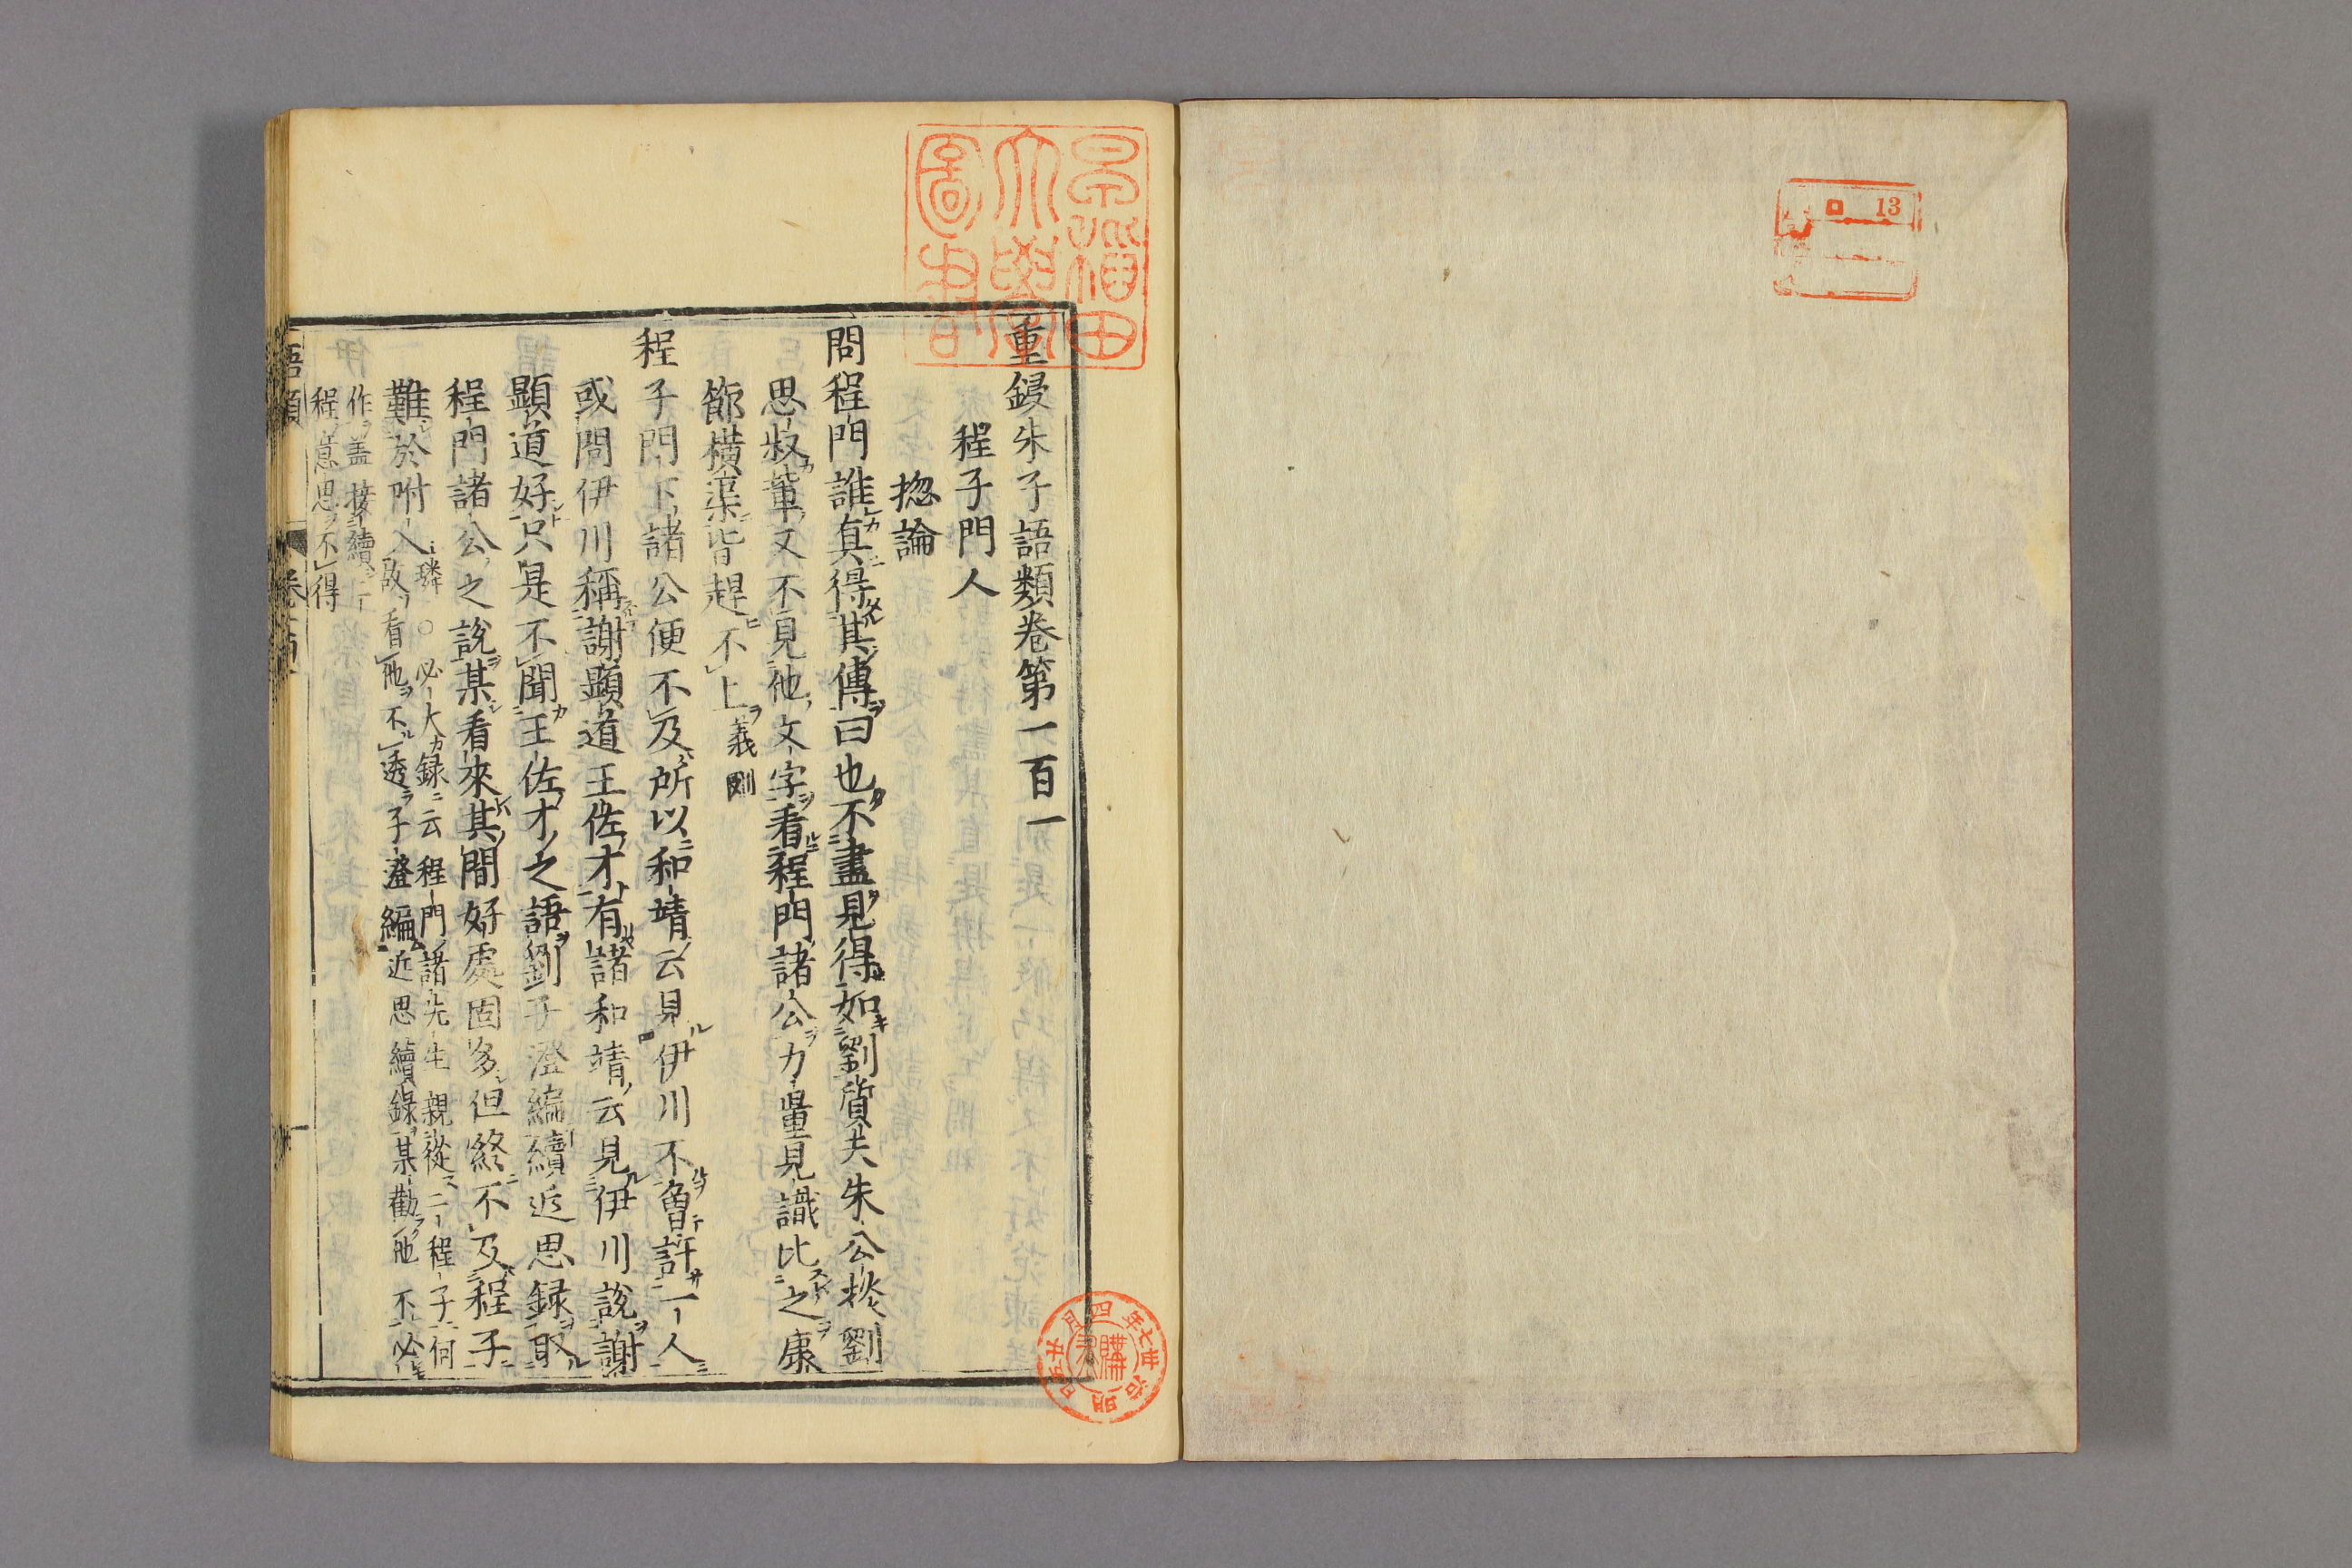 13
早稲田
大學
圖書
重鋟朱子語類卷第一百一
程子門人
捴論
問程門誰真得其傳曰也不盡見得如劉質夫朱公掞劉
思叔輩又不見他文字看程門諸公力量見識比之康
節橫渠皆趕不上義剛
程子門下諸公便不及所以和靖云見伊川不曾許一人
或問伊川稱謝顯道王佐才有諸和靖云見伊川說謝
顯道好只是不聞王佐才之語劉子澄編續近思錄取
程門諸公之說某看來其間好處固多但終不及程子
難於附入璘○必大錄云程門諸先生親從二程子何
故看他不透子澄編近思續錄某勸他不必
作盖接續二
程意思不得
語類 卷一百一
明治廿七年四月廿五日
購求